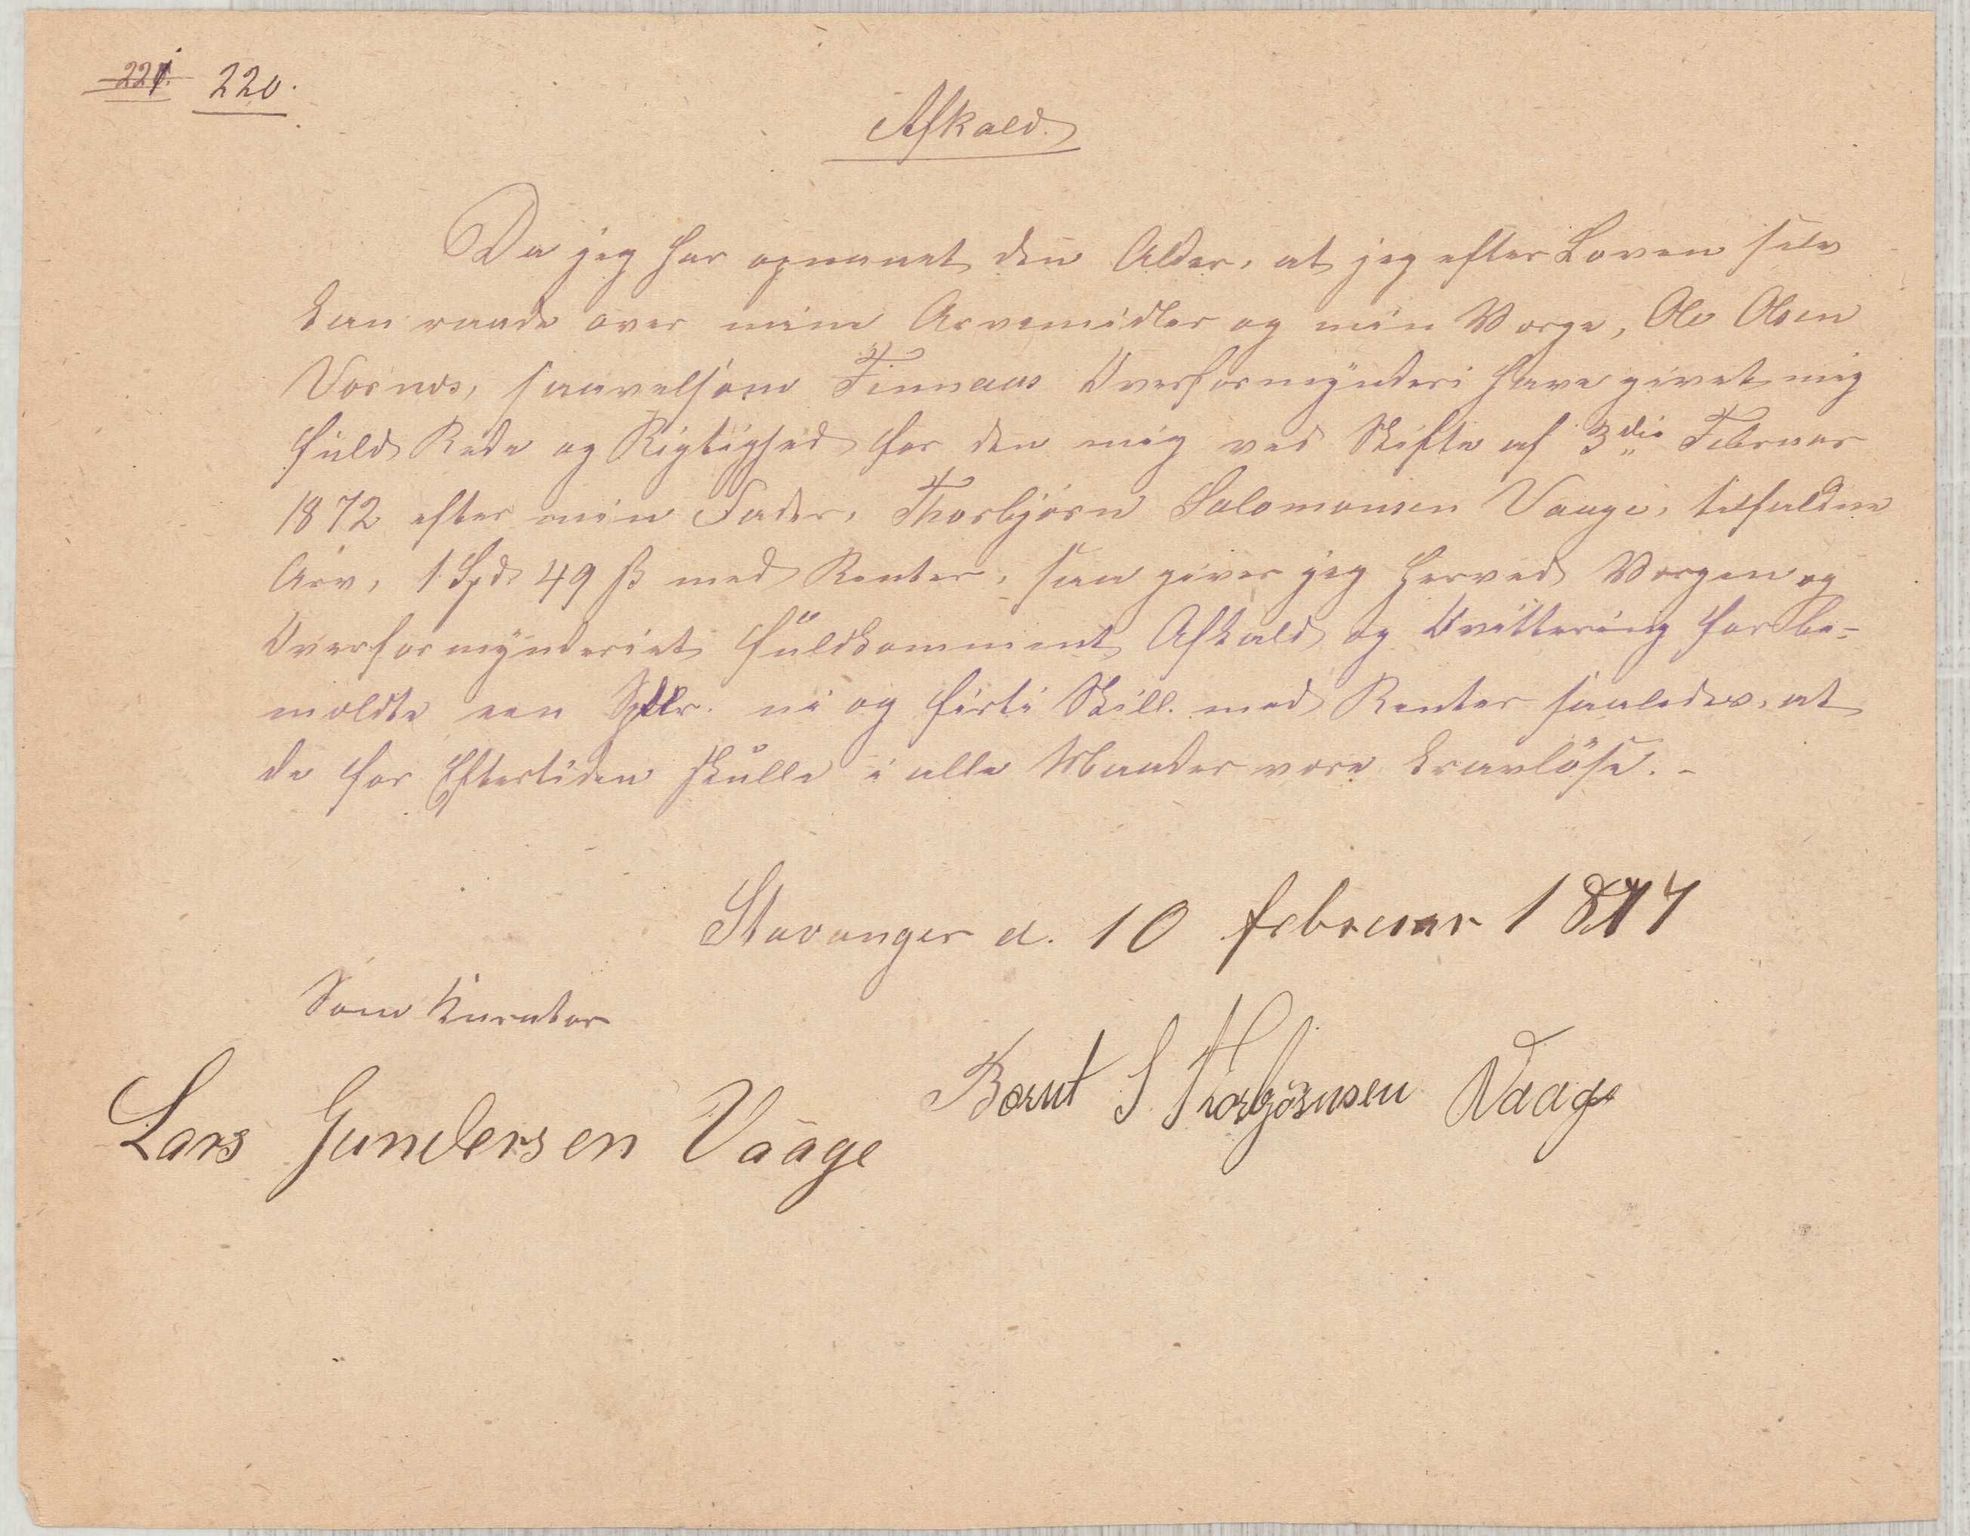 221. 220.
Afkald
Da jeg har opnaaet den Alder, at jeg efter Loven selv
kan raade over mine Arvemidler og min Værge, Ole Olsen
Vornæs, saavelsom Finnaas Overformynderi have givet mig
fuld Rede og Rigtighed for den mig ved Skifte af 3die Februar
1872 efter min Fader, Thorbjørn Salomonsen Vaage, tilfaldne
Arv, 1 Spd 49 ß med Renter, saa giver jeg herved Værgen og
Overformynderiet fuldkomment Afkald og Kvittering for be-
meldte een Spdlr. ni og firti Skill. med Renter saaledes, at
de for Eftertiden skulle i alle Maader være kravløse. -
Stavanger d. 10 februar 1877
Som Kurator
Bernt S Thorbjørnsen Vaage
Lars Gundersen Vaage